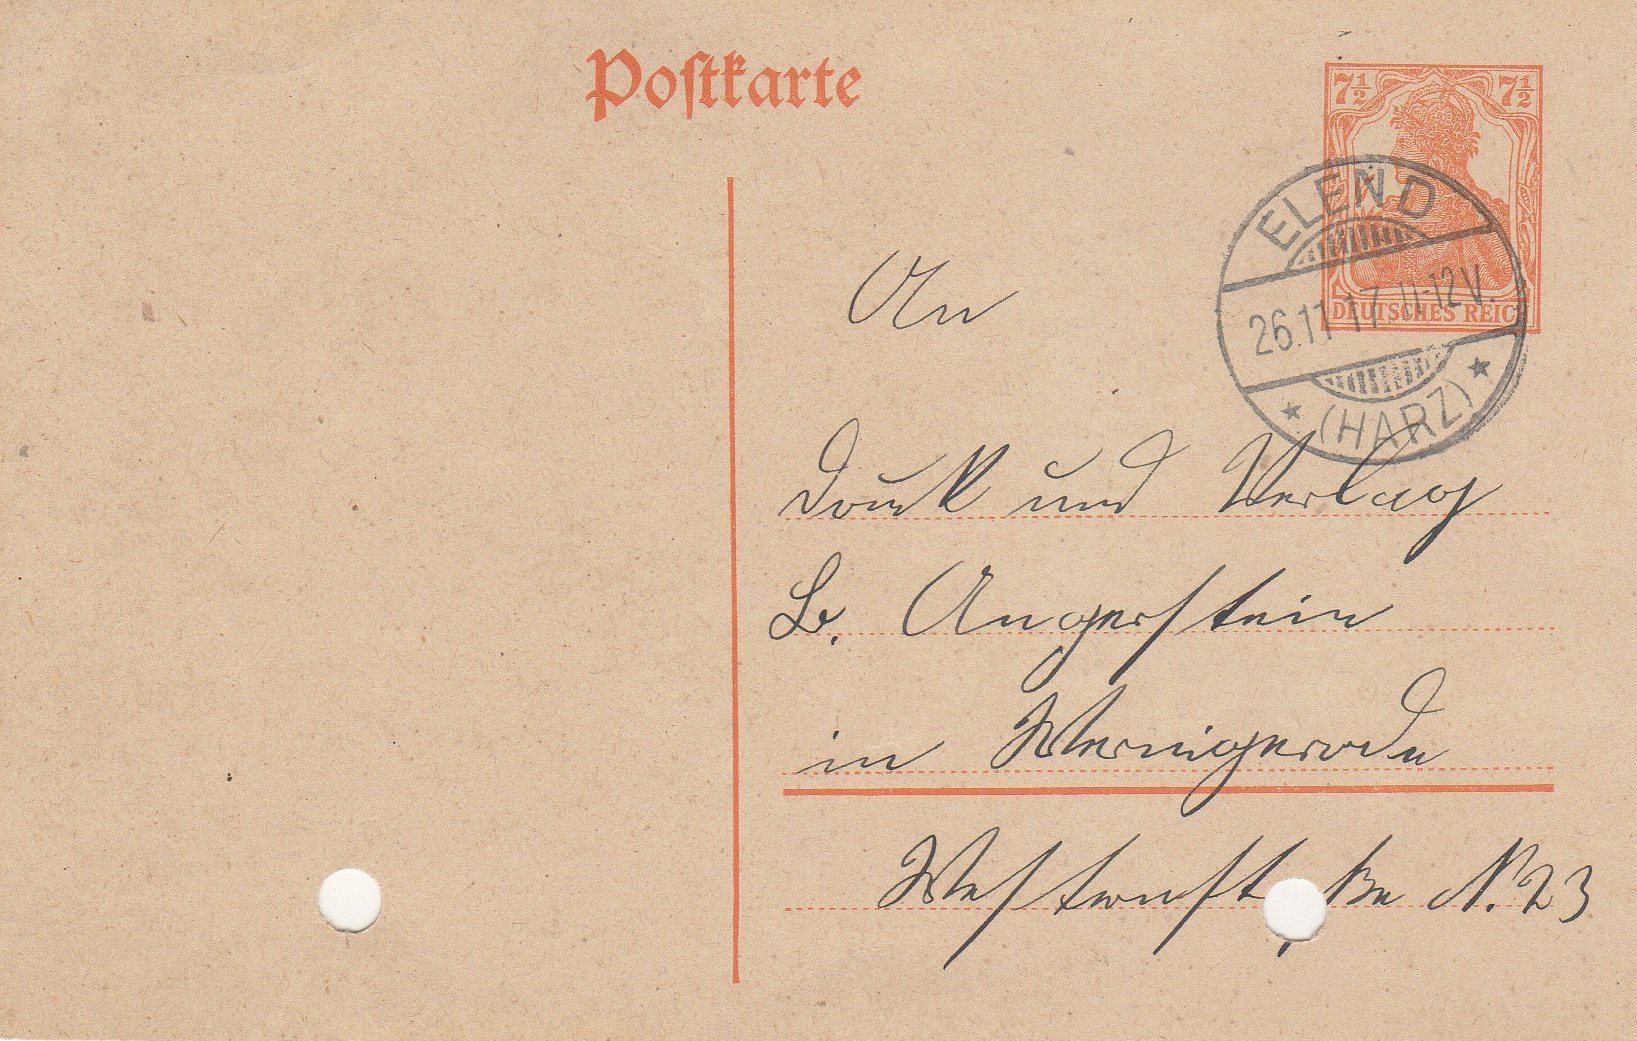 Postkarte
7½ 7½
DEUTSCHES REICH
ELEND
26.11.17. 11-12V.
* (HARZ) *
An
Druck und Verlag
B. Angerstein
in Wernigerode
Westernstraße N. 23